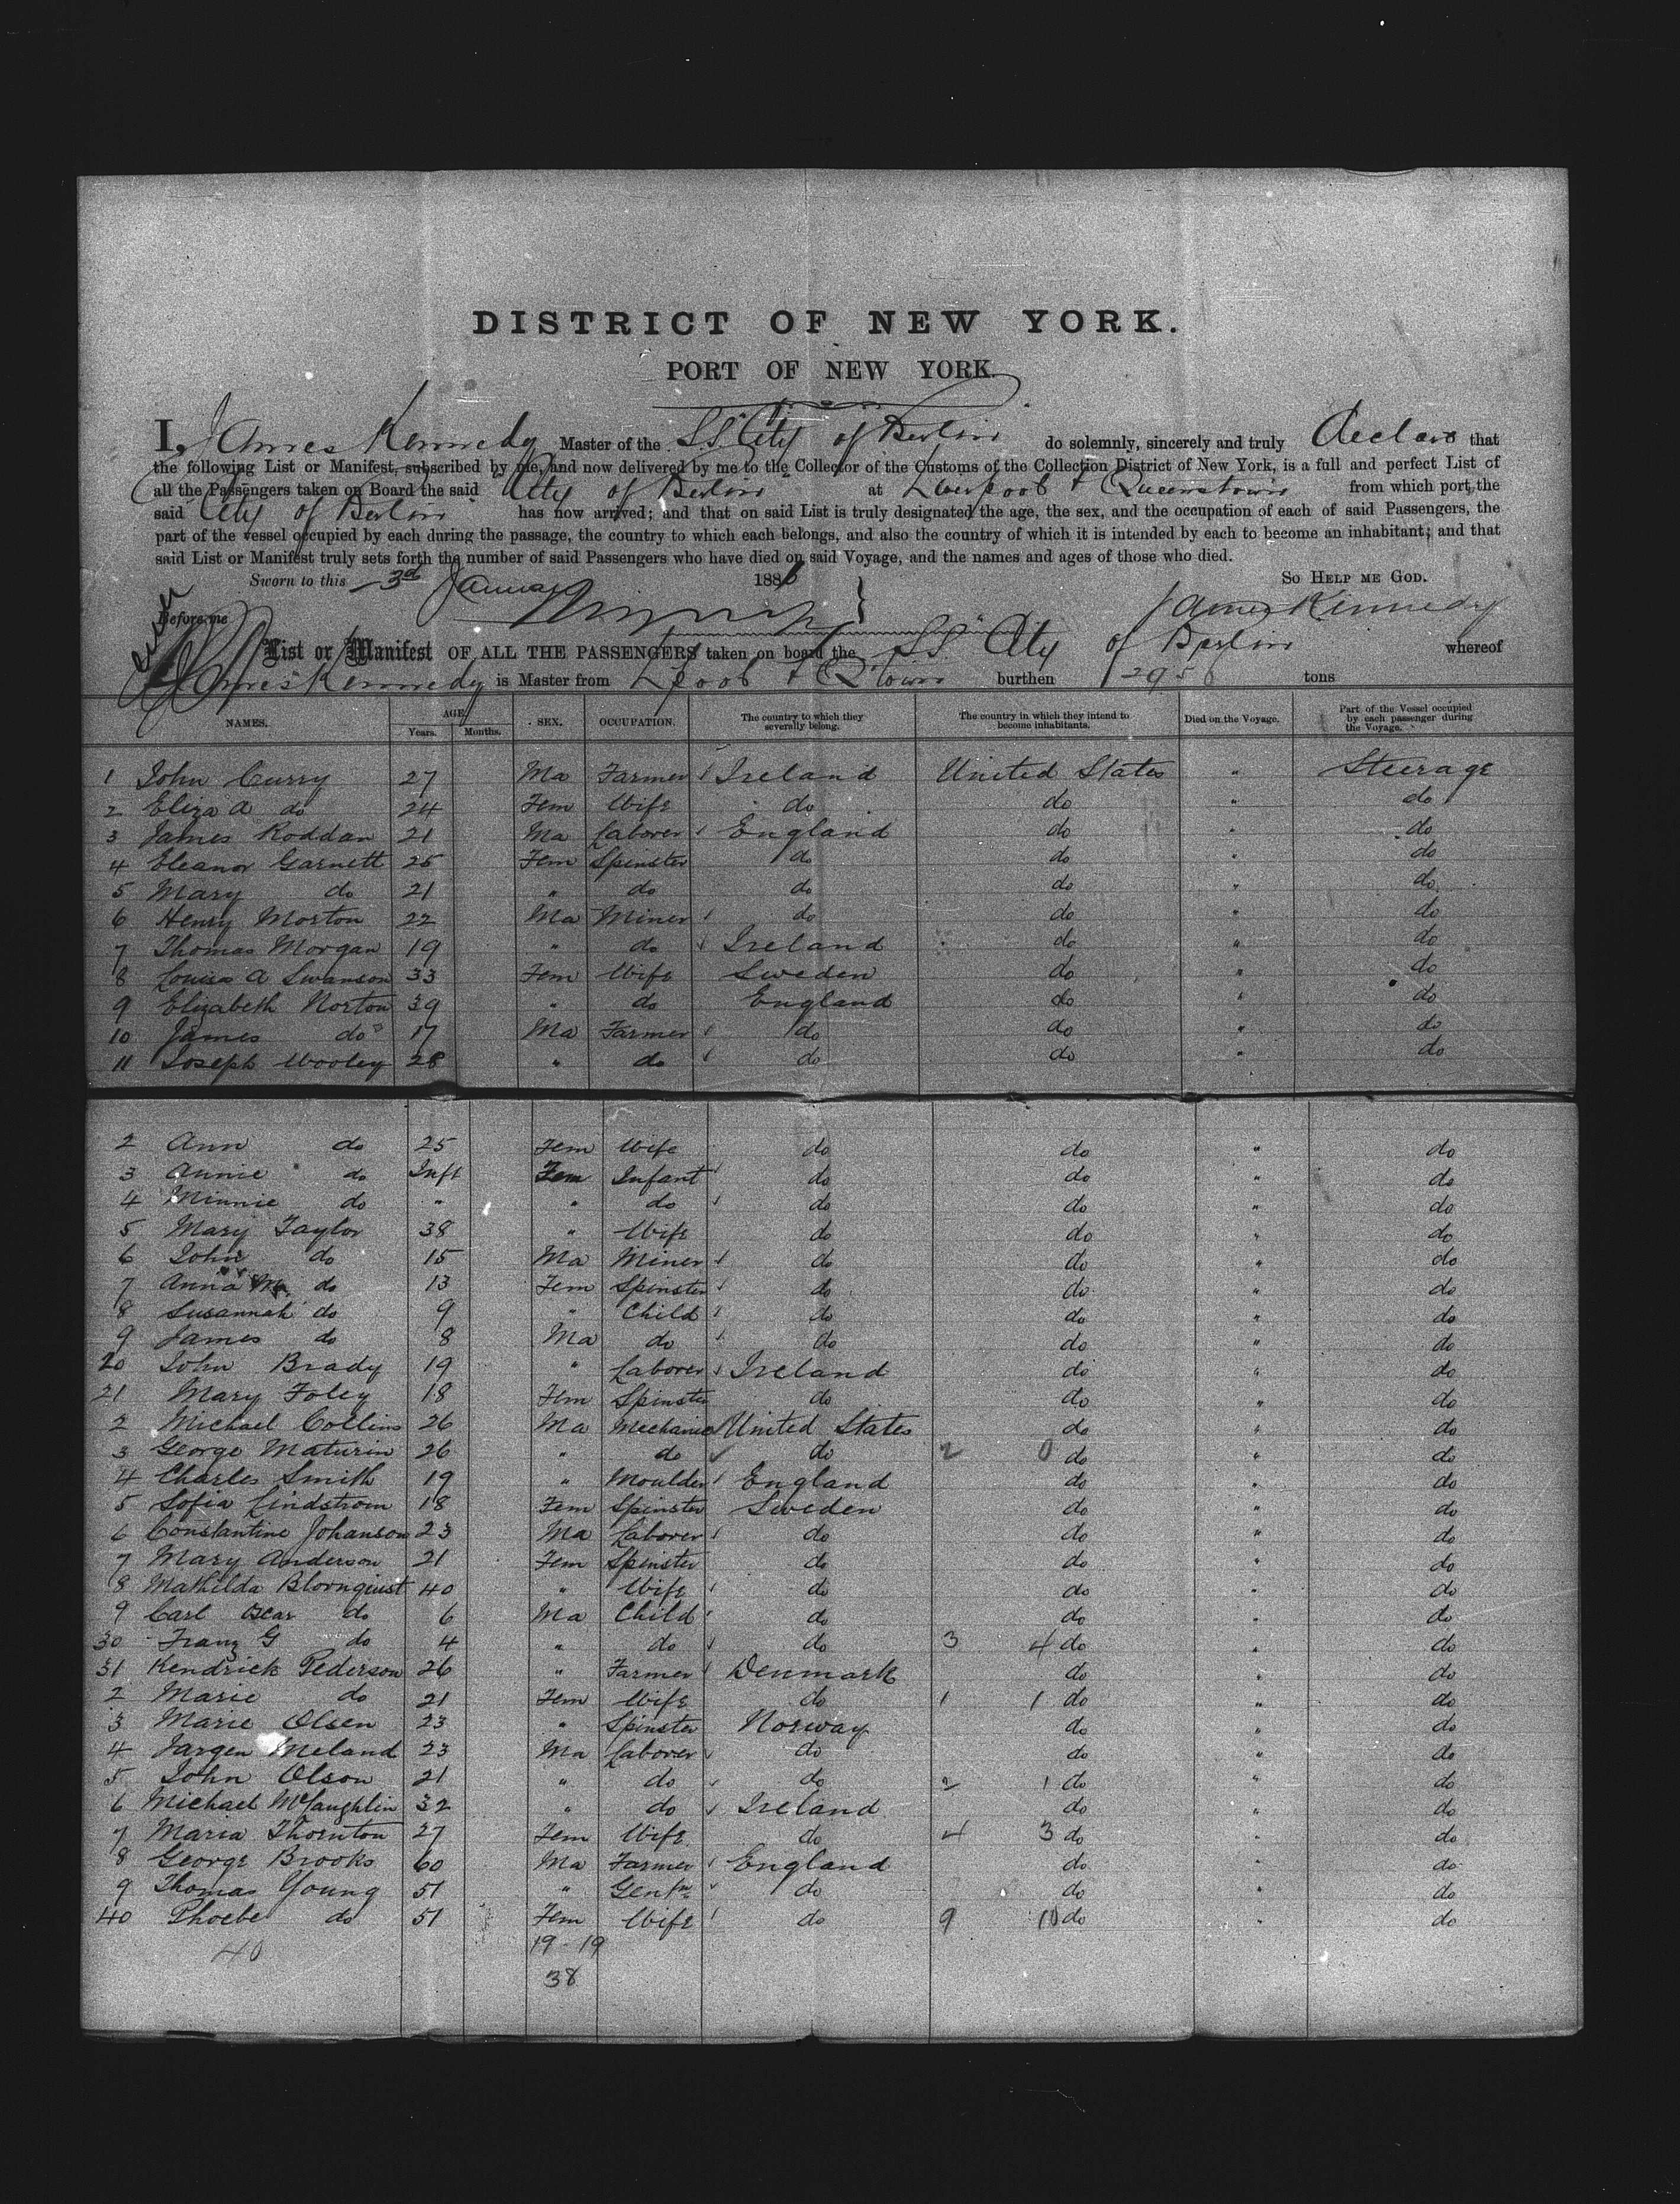 DISTRICT OF NEW YORK.
PORT OF NEW YORK.
I, James Kennedy Master of the S.S. "City of Berlin" do solemnly, sincerely and truly declare that
the following List or Manifest, subscribed by me, and now delivered by me to the Collector of the Customs of the Collection District of New York, is a full and perfect List of
all the Passengers taken on Board the said "City of Berlin" at Liverpool & Queenstown from which port, the
said City of Berlin has now arrived; and that on said List is truly designated the age, the sex, and the occupation of each of said Passengers, the
part of the vessel occupied by each during the passage, the country to which each belongs, and also the country of which it is intended by each to become an inhabitant; and that
said List or Manifest truly sets forth the number of said Passengers who have died on said Voyage, and the names and ages of those who died.
Sworn to this 3rd January 188 SO HELP ME GOD.
Before me James Kennedy
List or Manifest OF ALL THE PASSENGERS taken on board the SS "City of Berlin whereof
James Kennedy is Master from Lpool & Qtown burthen tons
NAMES. AGE. Years. Months. SEX. OCCUPATION. The country to which they severally belong. The country in which they intend to become inhabitants. Died on the Voyage. Part of the Vessel occupied by each passenger during the Voyage.
1 John Curry 27 Ma Farmer Ireland United States " Steerage
2 Eliza A do 24 Fem Wife do do " do
3 James Roddan 21 Ma Laborer England do " do
4 Eleanor Garnett 25 Fem Spinster do do " do
5 Mary do 21 " do do do " do
6 Henry Morton 22 Ma Miner do do " do
7 Thomas Morgan 19 " do Ireland do " do
8 Louisa A Swanson 33 Fem Wife Sweden do " do
9 Elizabeth Norton 39 " do England do " do
10 James do 17 Ma Farmer do do " do
11 Joseph Wooley 28 " do do do " do
2 Ann do 25 Fem Wife do do " do
3 Annie do Inft Fem Infant do do " do
4 Minnie do " " do do do " do
5 Mary Taylor 38 " Wife do do " do
6 John do 15 Ma Miner do do " do
7 Anna M. do 13 Fem Spinster do do " do
8 Susannah do 9 " Child do do " do
9 James do 8 Ma do do do " do
20 John Brady 19 " Laborer Ireland do " do
21 Mary Foley 18 Fem Spinster do do " do
2 Michael Collins 26 Ma Mechanic United States do " do
3 George Maturin 26 " do do 2 0 do " do
4 Charles Smith 19 " Moulder England do " do
5 Sofia Lindstrom 18 Fem Spinster Sweden do " do
6 Constantine Johanson 23 Ma Laborer do do " do
7 Mary Anderson 21 Fem Spinster do do " do
8 Mathilda Blomquist 40 " Wife do do " do
9 Carl Oscar do 6 Ma Child do do " do
30 Franz G do 4 " do do 3 4 do " do
31 Kendrick Pederson 26 " Farmer Denmark do " do
2 Marie do 21 Fem Wife do 1 1 do " do
3 Marie Olsen 23 " Spinster Norway do " do
4 Jargen Meland 23 Ma Laborer do do " do
5 John Olson 21 " do do 2 1 do " do
6 Michael McLaughlin 32 " do Ireland do " do
7 Maria Thornton 27 Fem Wife do 4 3 do " do
8 George Brooks 60 Ma Farmer England do " do
9 Thomas Young 51 " Gentn do do " do
40 Phoebe do 51 Fem Wife do 9 10 do " do
40 19-19
38